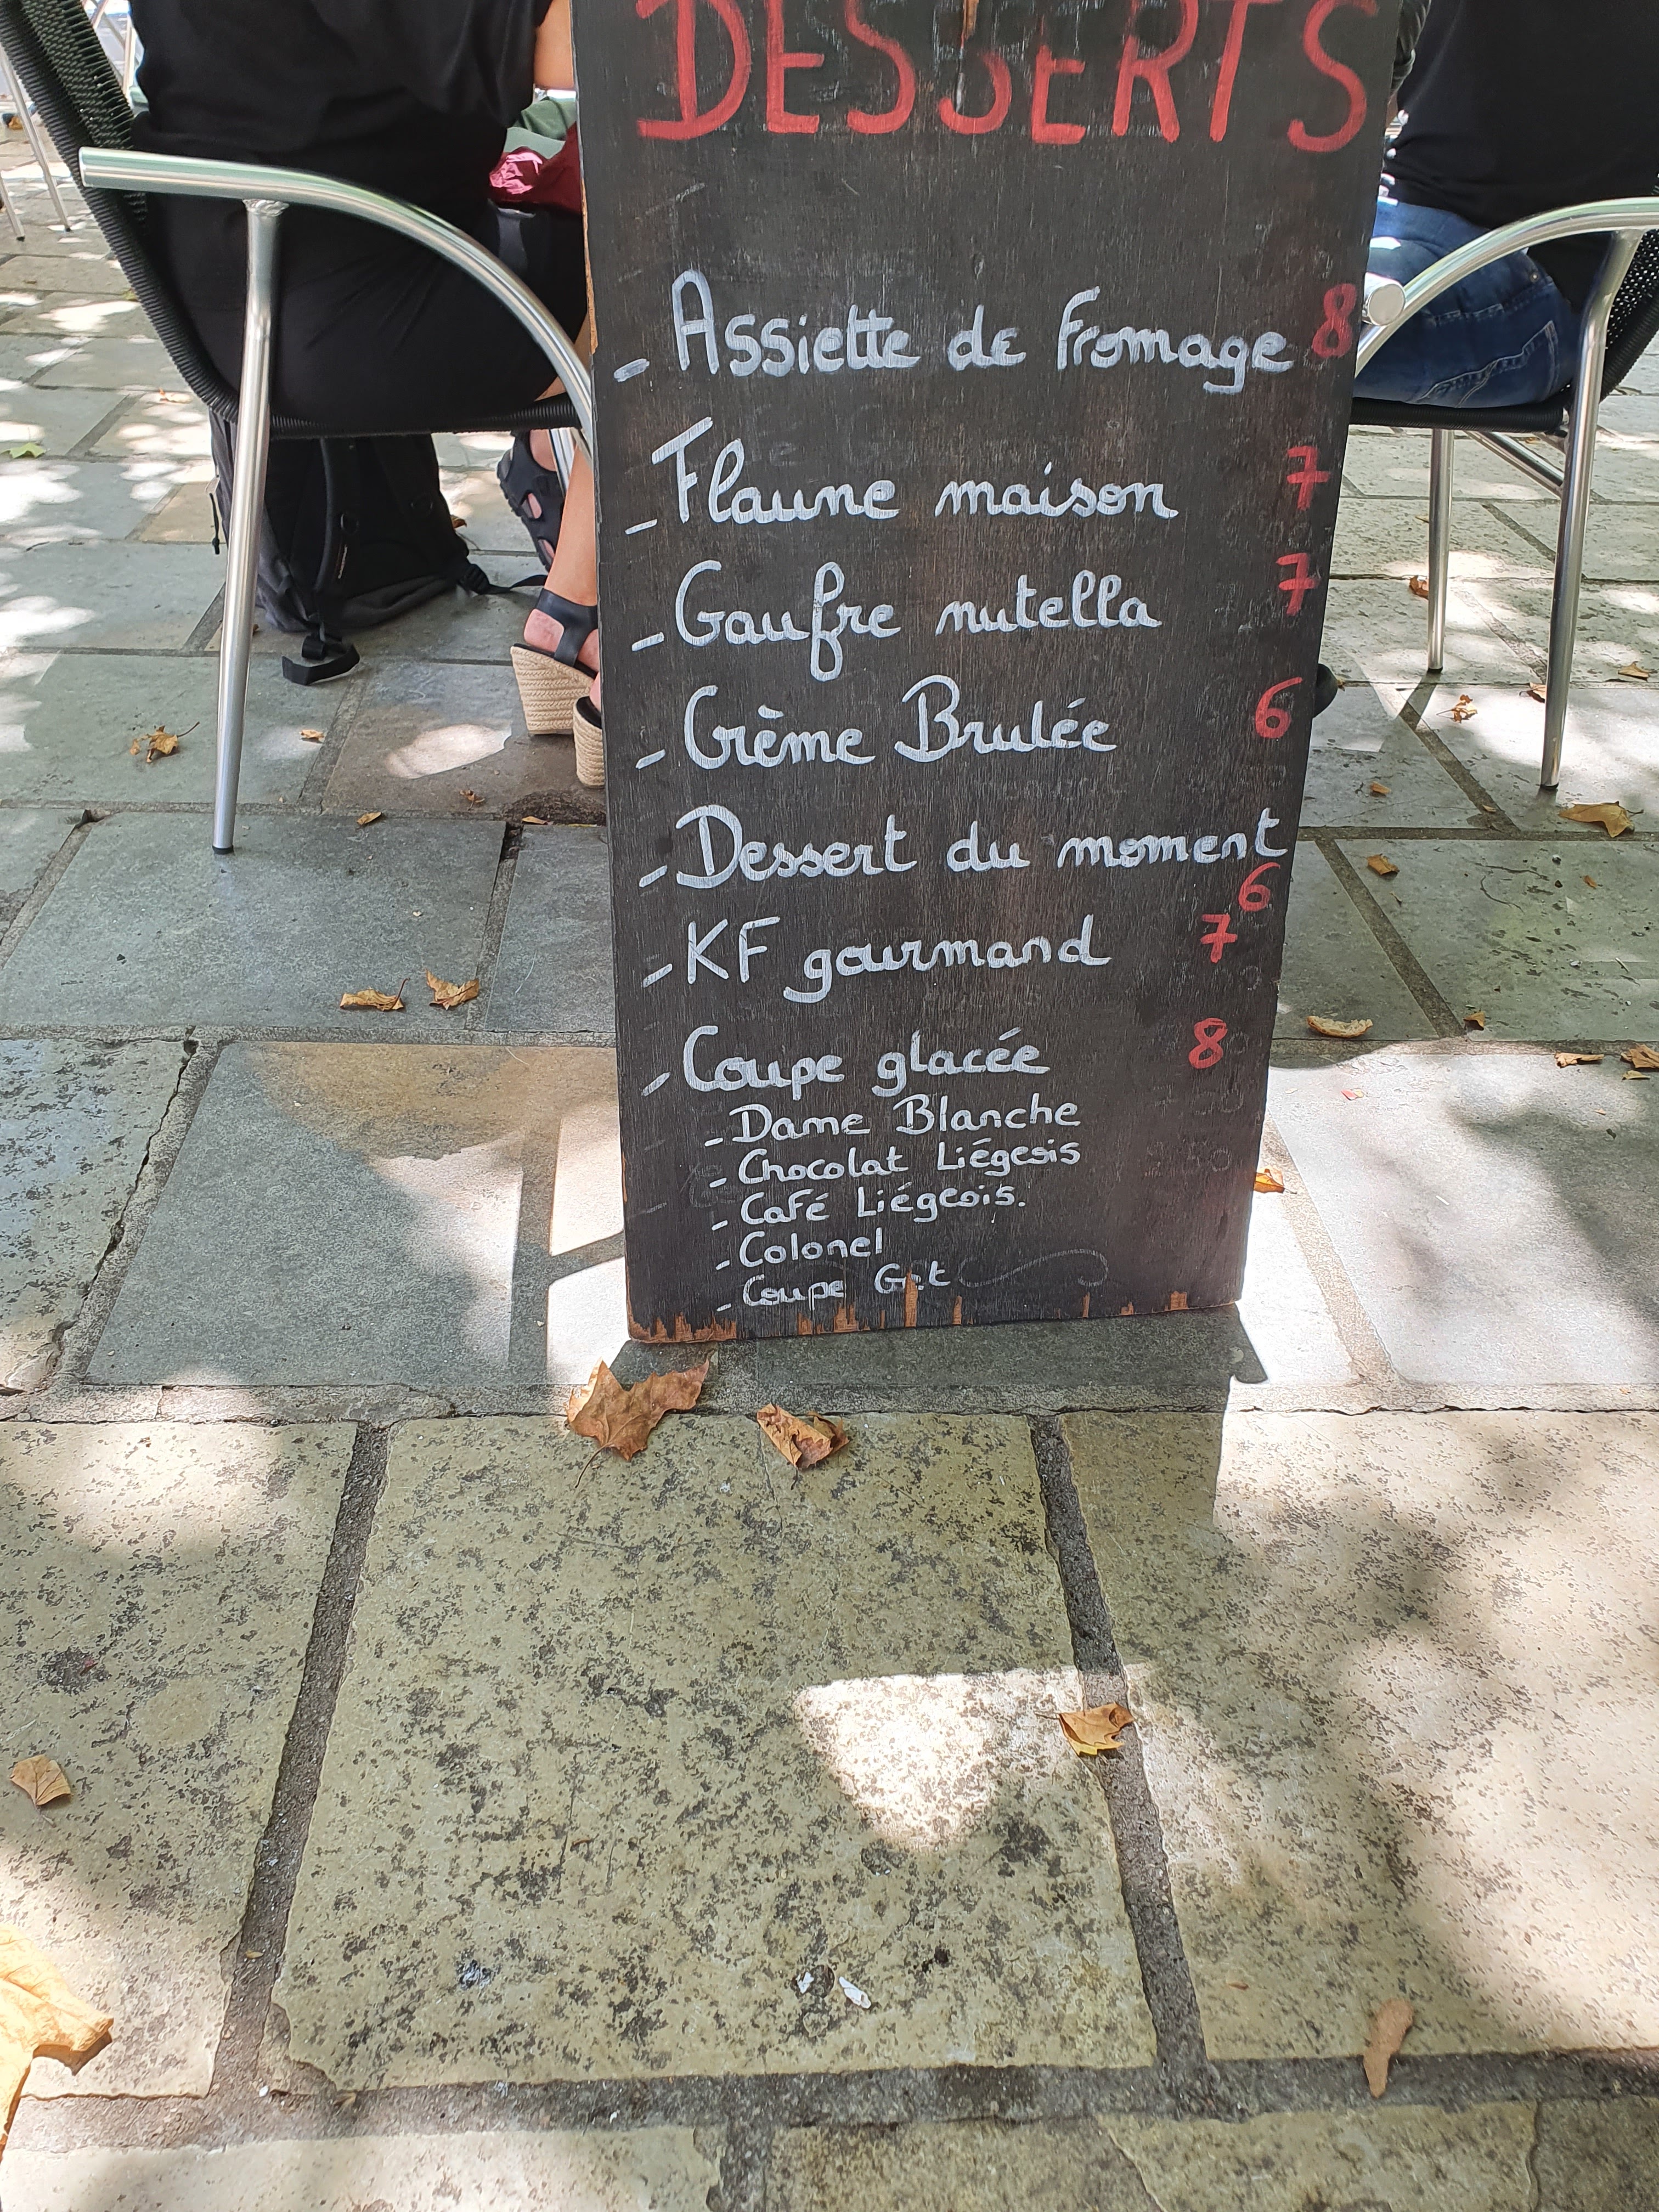 DESSERTS
- Assiette de fromage 8
- Flaune maison 7
- Gaufre nutella 7
- Crème Brulée 6
- Dessert du moment
6
- KF gourmand 7
- Coupe glacée 8
- Dame Blanche
- Chocolat Liégeois
- Café Liégeois.
- Colonel
- Coupe Get